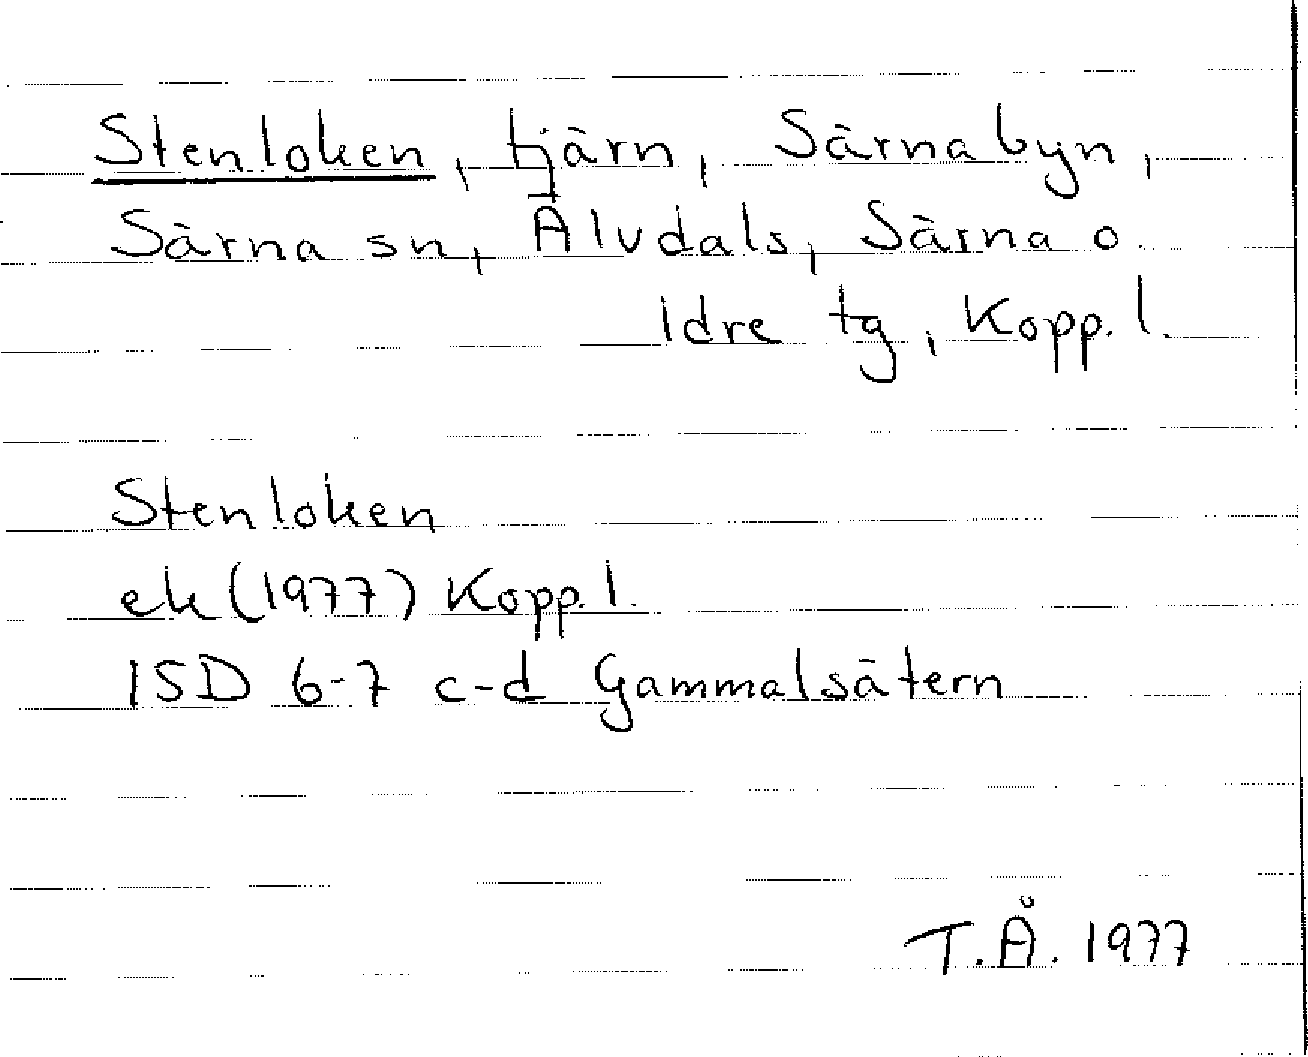 Stenloken, tjärn, Särnabyn,
Särna sn, Älvdals, Särna o.
Idre tg, Kopp. l.
Stenloken
ek (1977) Kopp. l.
15D 6-7 c-d Gammalsätern
T.Å. 1977